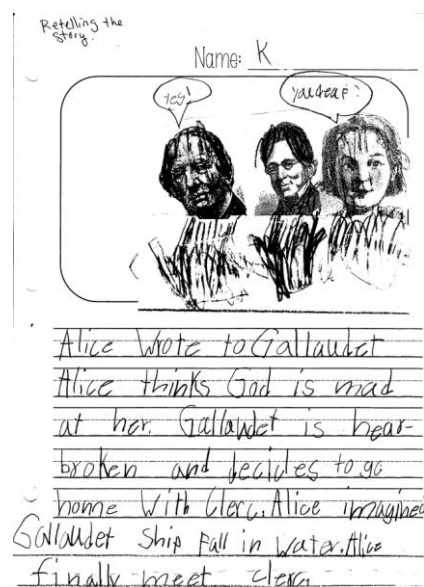 Retelling the
story.
Name: K
Yes!
you deaf?
Alice Wrote to Gallaudet
Alice thinks God is mad
at her. Gallaudet is hear-
broken and decides to go
home With Clerc. Alice imagined
Gallaudet Ship Fall in water. Alice
finally meet clerc.